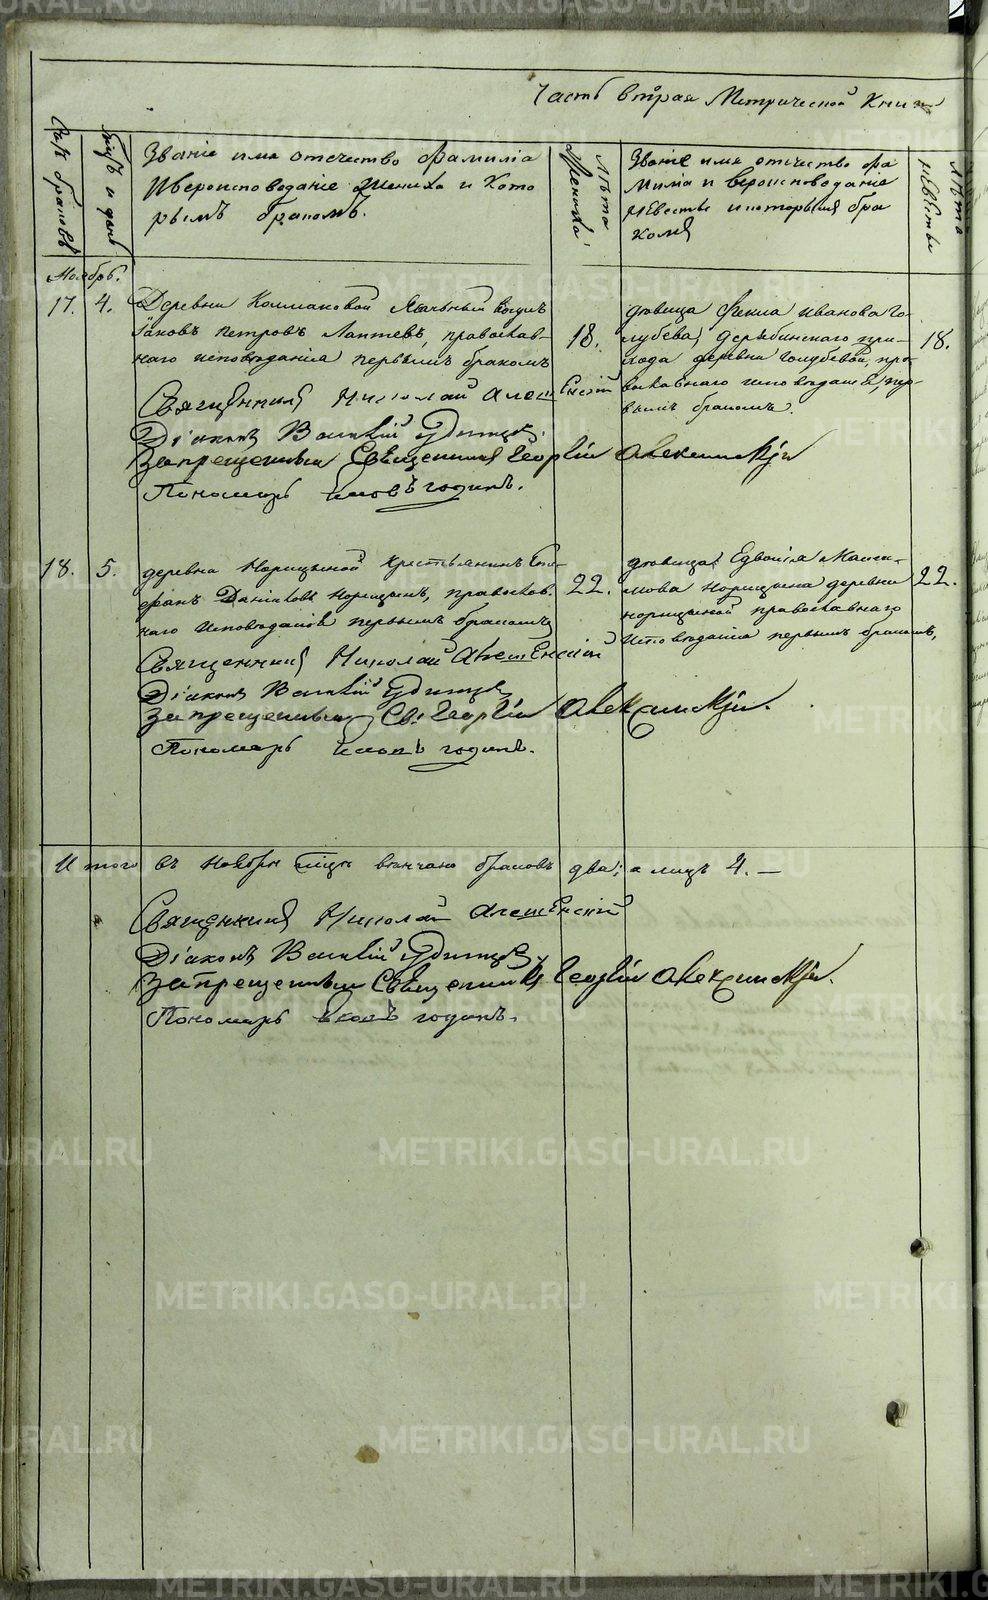 Часть вторая Метрической Книги
Счетъ браковъ
Мѣсяцъ и день
Званіе имя отечество фамилія
и вероисповѣданіе Жениха и Кото
рымъ бракомъ.
Лѣта Жениха
Званіе имя отечество фа
милія и вероисповѣданіе
невесты и которымъ бра
комъ
Лѣта невесты
Ноябрь.
17. 4.
Деревни Колмаковой
Іаковъ Петровъ Лаптевъ, православ-
наго исповѣданія первымъ бракомъ
18.
дѣвица Фекла Иванова Го-
лубева, Дерябинскаго при-
хода деревни Голубевой, пра-
вославнаго исповѣданія, пер-
вымъ бракомъ.
18.
Священникъ Николай
Діаконъ Василій Удинцевъ
Запрещенный Священникъ Георгій
Пономарь Іаковъ Годинъ.
18. 5.
деревни Норицыной крестьянинъ Сте-
фанъ Даніиловъ Норицынъ, православ-
наго исповѣданія первымъ бракомъ
22.
дѣвица Евдокія Макси-
мова Норицына деревни
Норицыной православнаго
исповѣданія первымъ бракомъ,
22.
Священникъ Николай
Діаконъ Василій Удинцевъ
Запрещенный Св: Георгій
Пономарь Іаковъ Годинъ.
Итого въ Ноябрѣ мцѣ вѣнчано браковъ два; а лицъ 4. —
Священникъ Николай
Діаконъ Василій Удинцевъ
Запрещенный Священникъ Георгій
Пономарь Іаковъ Годинъ.
METRIKI.GASO-URAL.RU